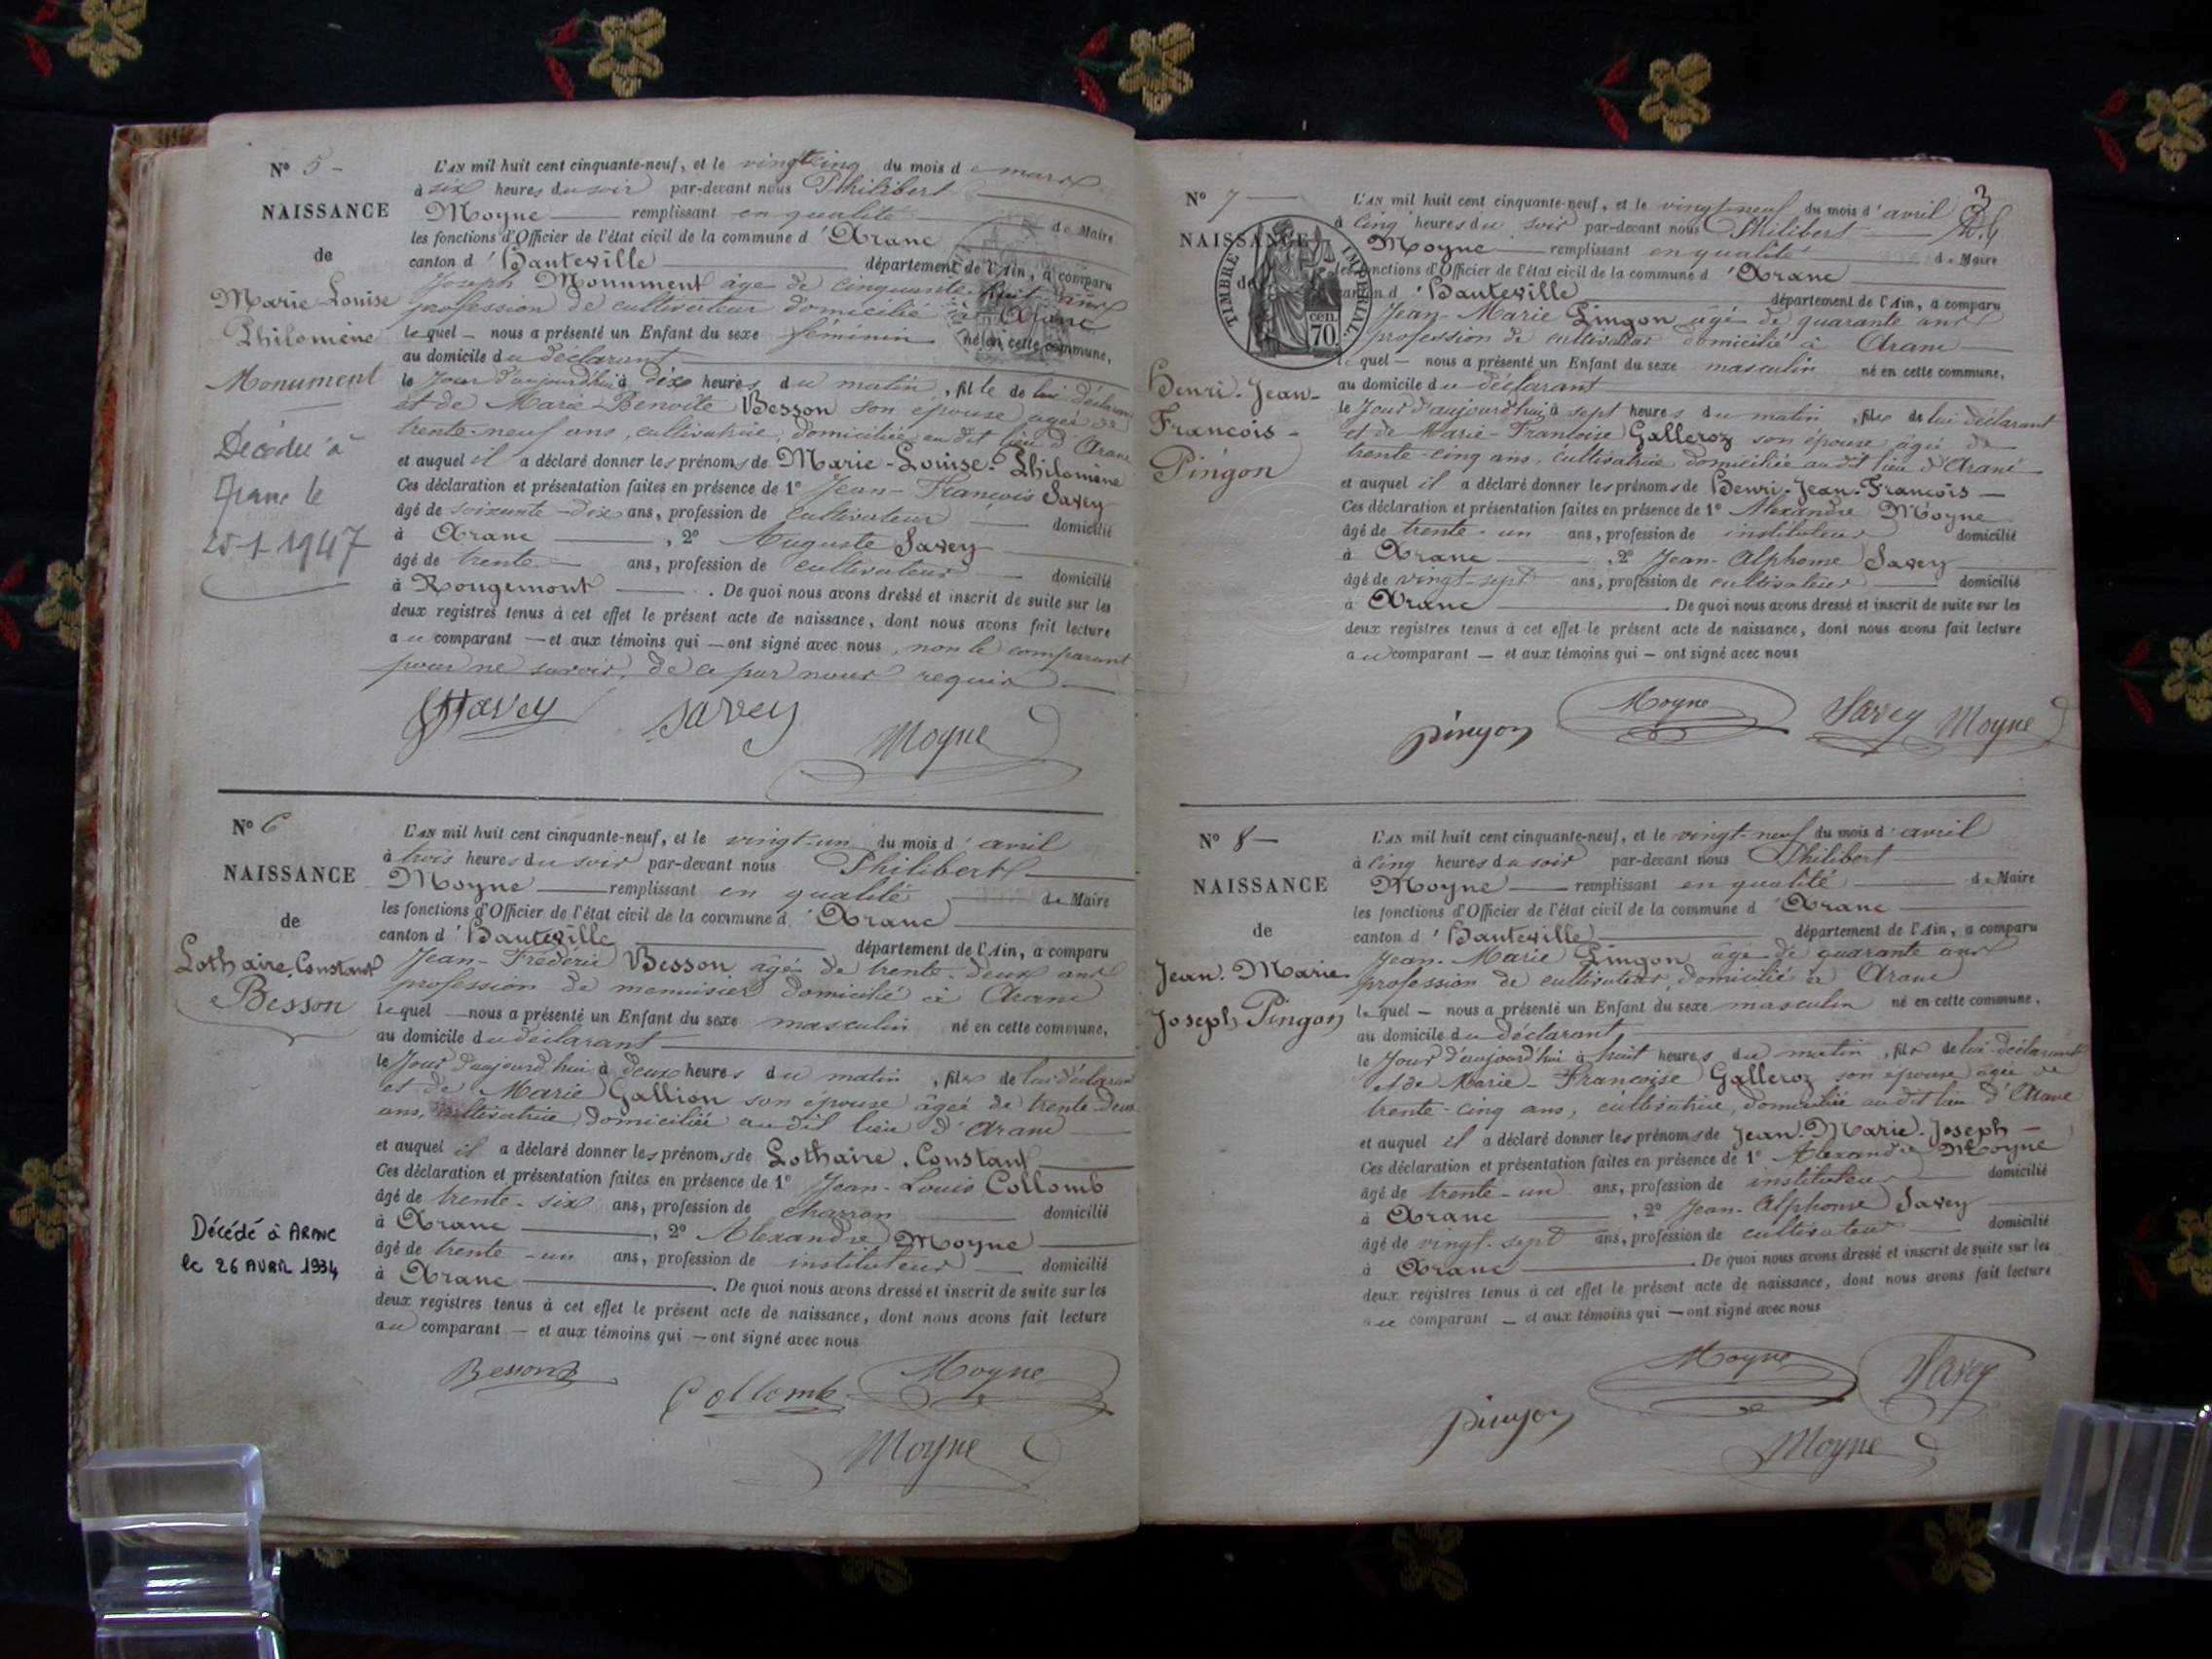 N° 5 -
NAISSANCE
de
Marie Louise
Philomène
Monument
Décédée à
Aranc le
1947
L'AN mil huit cent cinquante-neuf, et le vingt cinq du mois de mars
à six heures du soir par-devant nous Philibert
Moyne remplissant en qualité de Maire
les fonctions d'Officier de l'état civil de la commune d'Aranc
canton d'Hauteville département de l'Ain, a comparu
Joseph Monument âgé de cinquante-huit ans
profession de cultivateur domicilié à Aranc
lequel — nous a présenté un Enfant du sexe féminin né en cette commune,
au domicile du déclarant
le Jour d'aujourd'hui à dix heures du matin, fille de lui déclarant
et de Marie-Benoîte Besson son épouse âgée de
trente-neuf ans, cultivatrice, domiciliée au dit lieu d'Aranc
et auquel il a déclaré donner les prénoms de Marie-Louise-Philomène
Ces déclaration et présentation faites en présence de 1° Jean-François Savey
âgé de soixante-dix ans, profession de cultivateur domicilié
à Aranc, 2° Auguste Savey
âgé de trente ans, profession de cultivateur domicilié
à Rougemont. De quoi nous avons dressé et inscrit de suite sur les
deux registres tenus à cet effet le présent acte de naissance, dont nous avons fait lecture
au comparant — et aux témoins qui — ont signé avec nous, non le comparant
pour ne savoir, de ce par nous requis
Savey Savey
Moyne
N° 6
NAISSANCE
de
Lothaire, Constant
Besson
Décédé à ARANC
le 26 AVRIL 1934
L'AN mil huit cent cinquante-neuf, et le vingt-un du mois d'avril
à trois heures du soir par-devant nous Philibert
Moyne remplissant en qualité de Maire
les fonctions d'Officier de l'état civil de la commune d'Aranc
canton d'Hauteville département de l'Ain, a comparu
Jean-Frédéric Besson âgé de trente-deux ans
profession de menuisier domicilié à Aranc
lequel — nous a présenté un Enfant du sexe masculin né en cette commune,
au domicile du déclarant
le Jour d'aujourd'hui à deux heures du matin, fils de lui déclarant
et de Marie Gallion son épouse âgée de trente-deux
ans, cultivatrice, domiciliée au dit lieu d'Aranc
et auquel il a déclaré donner les prénoms de Lothaire, Constant
Ces déclaration et présentation faites en présence de 1° Jean-Louis Collomb
âgé de trente-six ans, profession de charron domicilié
à Aranc, 2° Alexandre Moyne
âgé de trente-un ans, profession de instituteur domicilié
à Aranc. De quoi nous avons dressé et inscrit de suite sur les
deux registres tenus à cet effet le présent acte de naissance, dont nous avons fait lecture
au comparant — et aux témoins qui — ont signé avec nous
Besson Collomb Moyne
Moyne
3
N° 7
NAISSANCE
de
TIMBRE IMPERIAL
70 cen.
Henri-Jean-
François-
Pingon
L'AN mil huit cent cinquante-neuf, et le vingt-neuf du mois d'avril
à cinq heures du soir par-devant nous Philibert
Moyne remplissant en qualité de Maire
les fonctions d'Officier de l'état civil de la commune d'Aranc
canton d'Hauteville département de l'Ain, a comparu
Jean-Marie Pingon âgé de quarante ans
profession de cultivateur domicilié à Aranc
lequel — nous a présenté un Enfant du sexe masculin né en cette commune,
au domicile du déclarant
le Jour d'aujourd'hui à sept heures du matin, fils de lui déclarant
et de Marie-Françoise Galleroz son épouse âgée de
trente-cinq ans, cultivatrice domiciliée au dit lieu d'Aranc
et auquel il a déclaré donner les prénoms de Henri-Jean-François
Ces déclaration et présentation faites en présence de 1° Alexandre Moyne
âgé de trente-un ans, profession de instituteur domicilié
à Aranc, 2° Jean-Alphonse Savey
âgé de vingt-sept ans, profession de cultivateur domicilié
à Aranc. De quoi nous avons dressé et inscrit de suite sur les
deux registres tenus à cet effet le présent acte de naissance, dont nous avons fait lecture
au comparant — et aux témoins qui — ont signé avec nous
pingon Moyne Savey Moyne
N° 8
NAISSANCE
de
Jean-Marie
Joseph Pingon
L'AN mil huit cent cinquante-neuf, et le vingt-neuf du mois d'avril
à cinq heures du soir par-devant nous Philibert
Moyne remplissant en qualité de Maire
les fonctions d'Officier de l'état civil de la commune d'Aranc
canton d'Hauteville département de l'Ain, a comparu
Jean-Marie Pingon âgé de quarante ans
profession de cultivateur, domicilié à Aranc
lequel — nous a présenté un Enfant du sexe masculin né en cette commune,
au domicile du déclarant
le Jour d'aujourd'hui à huit heures du matin, fils de lui déclarant
et de Marie-Françoise Galleroz son épouse âgée de
trente-cinq ans, cultivatrice, domiciliée au dit lieu d'Aranc
et auquel il a déclaré donner les prénoms de Jean-Marie-Joseph
Ces déclaration et présentation faites en présence de 1° Alexandre Moyne
âgé de trente-un ans, profession de instituteur domicilié
à Aranc, 2° Jean-Alphonse Savey
âgé de vingt-sept ans, profession de cultivateur domicilié
à Aranc. De quoi nous avons dressé et inscrit de suite sur les
deux registres tenus à cet effet le présent acte de naissance, dont nous avons fait lecture
au comparant — et aux témoins qui — ont signé avec nous
pingon Moyne Savey
Moyne